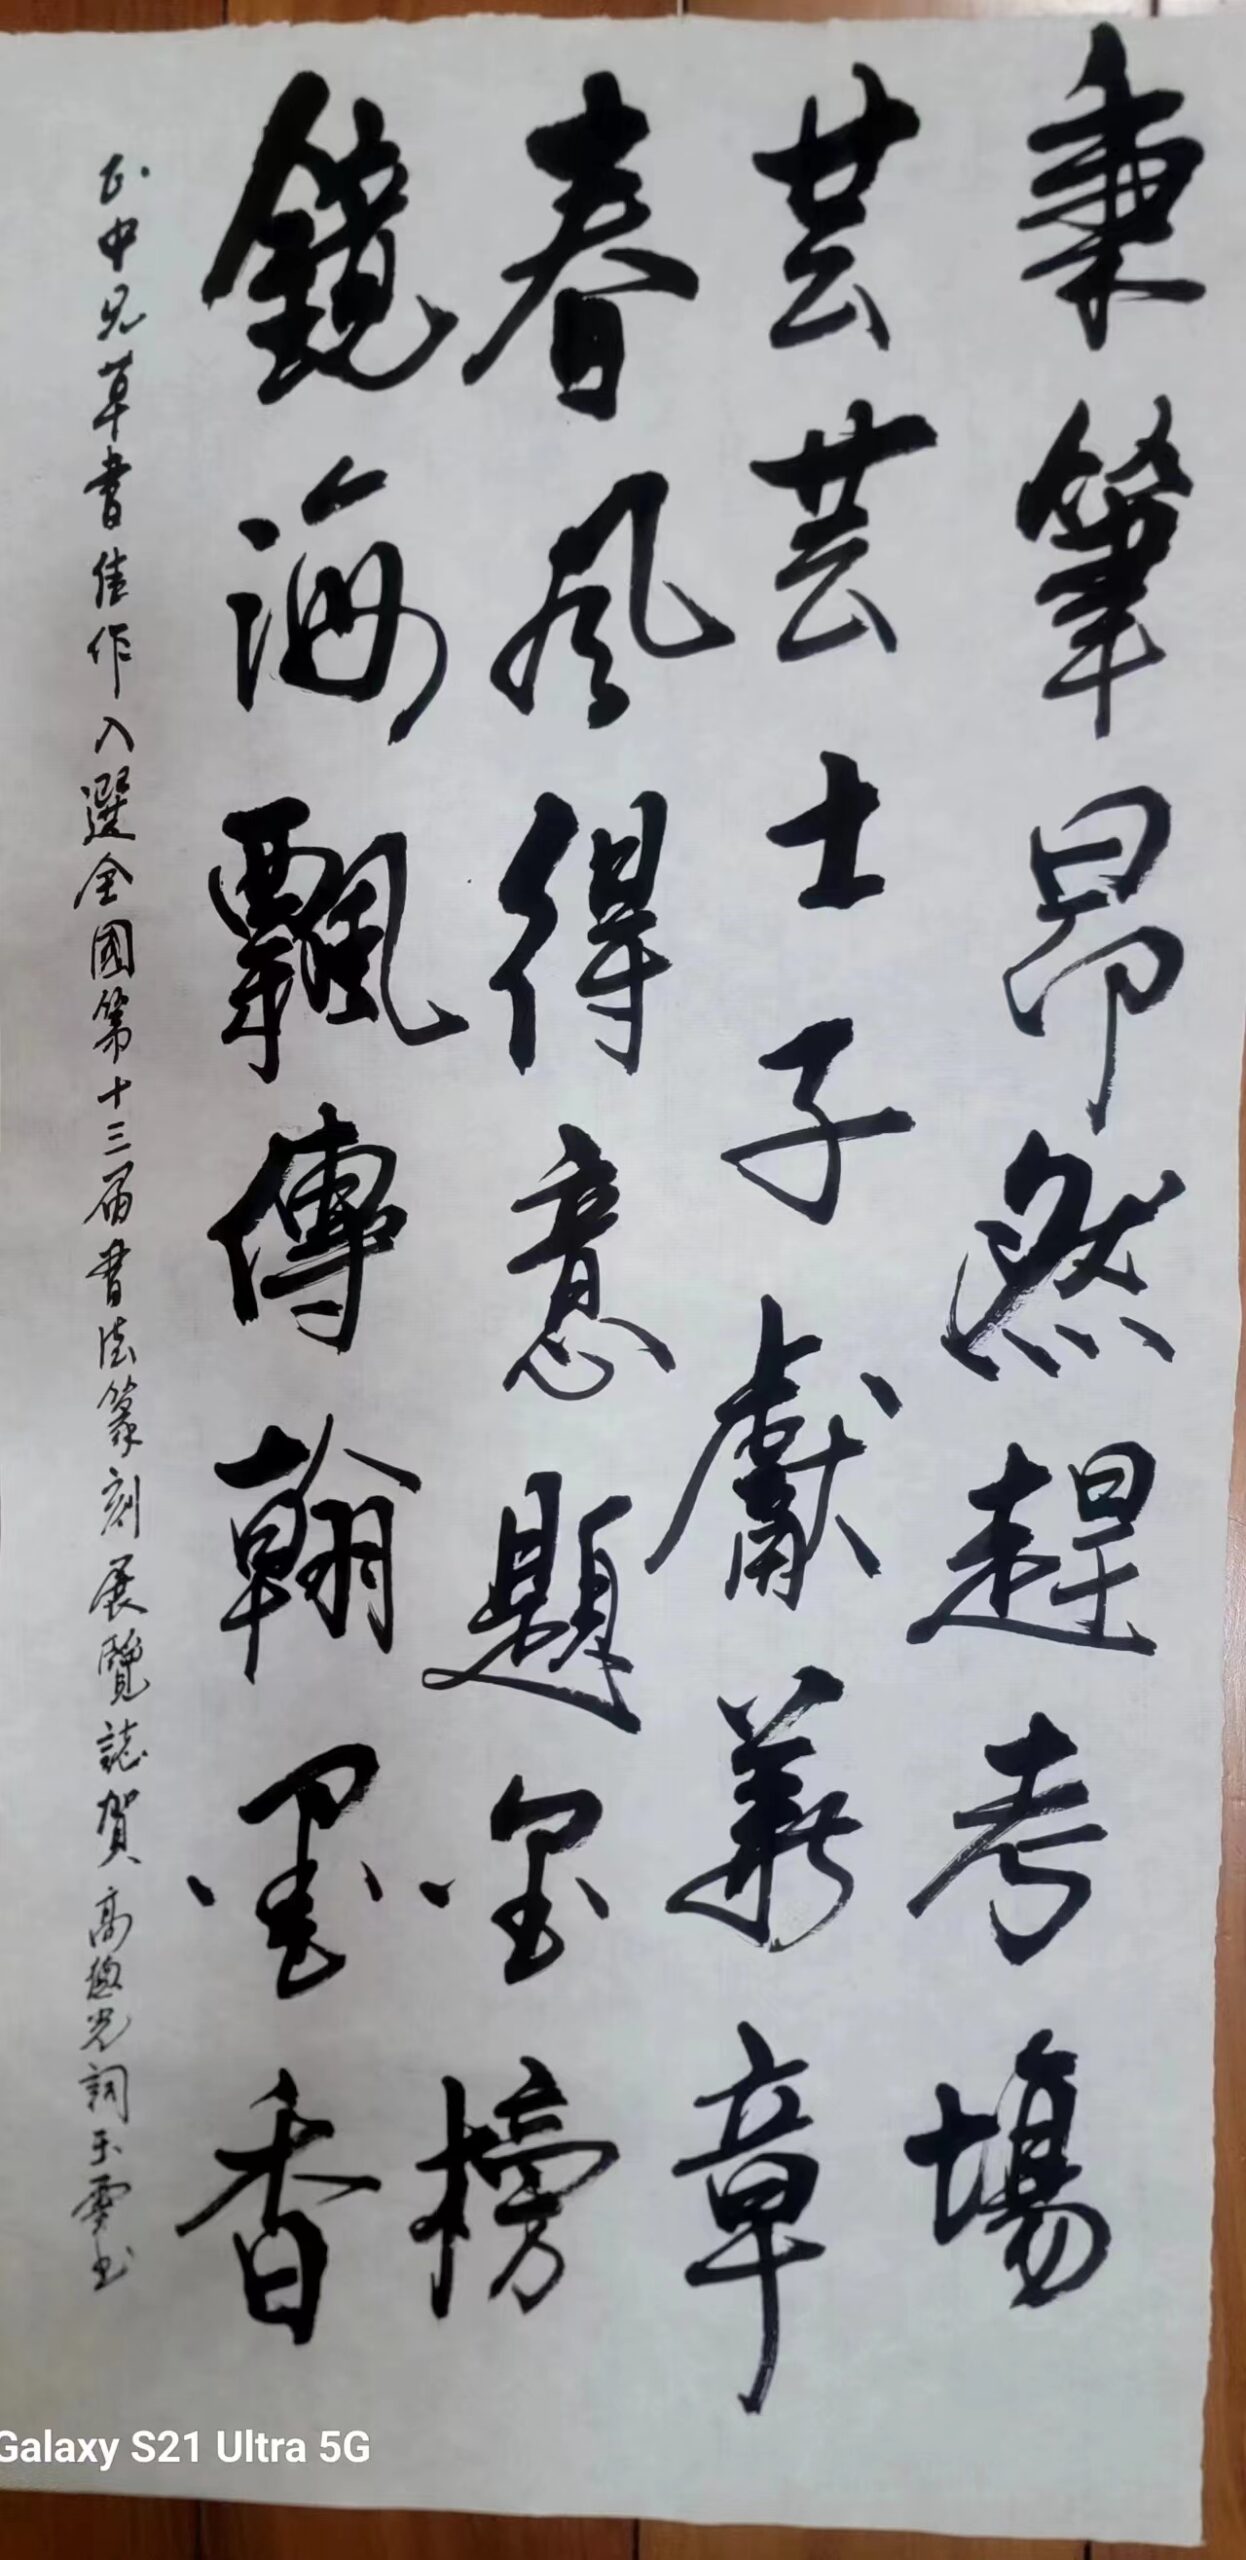 秉筆昂然趕考場
芸芸士子獻華章
春風得意題金榜
鏡海飄傳翰墨香
正中兄草書佳作入選全國第十三届書法篆刻展覽誌賀 高德光詞玉雲书
Galaxy S21 Ultra 5G